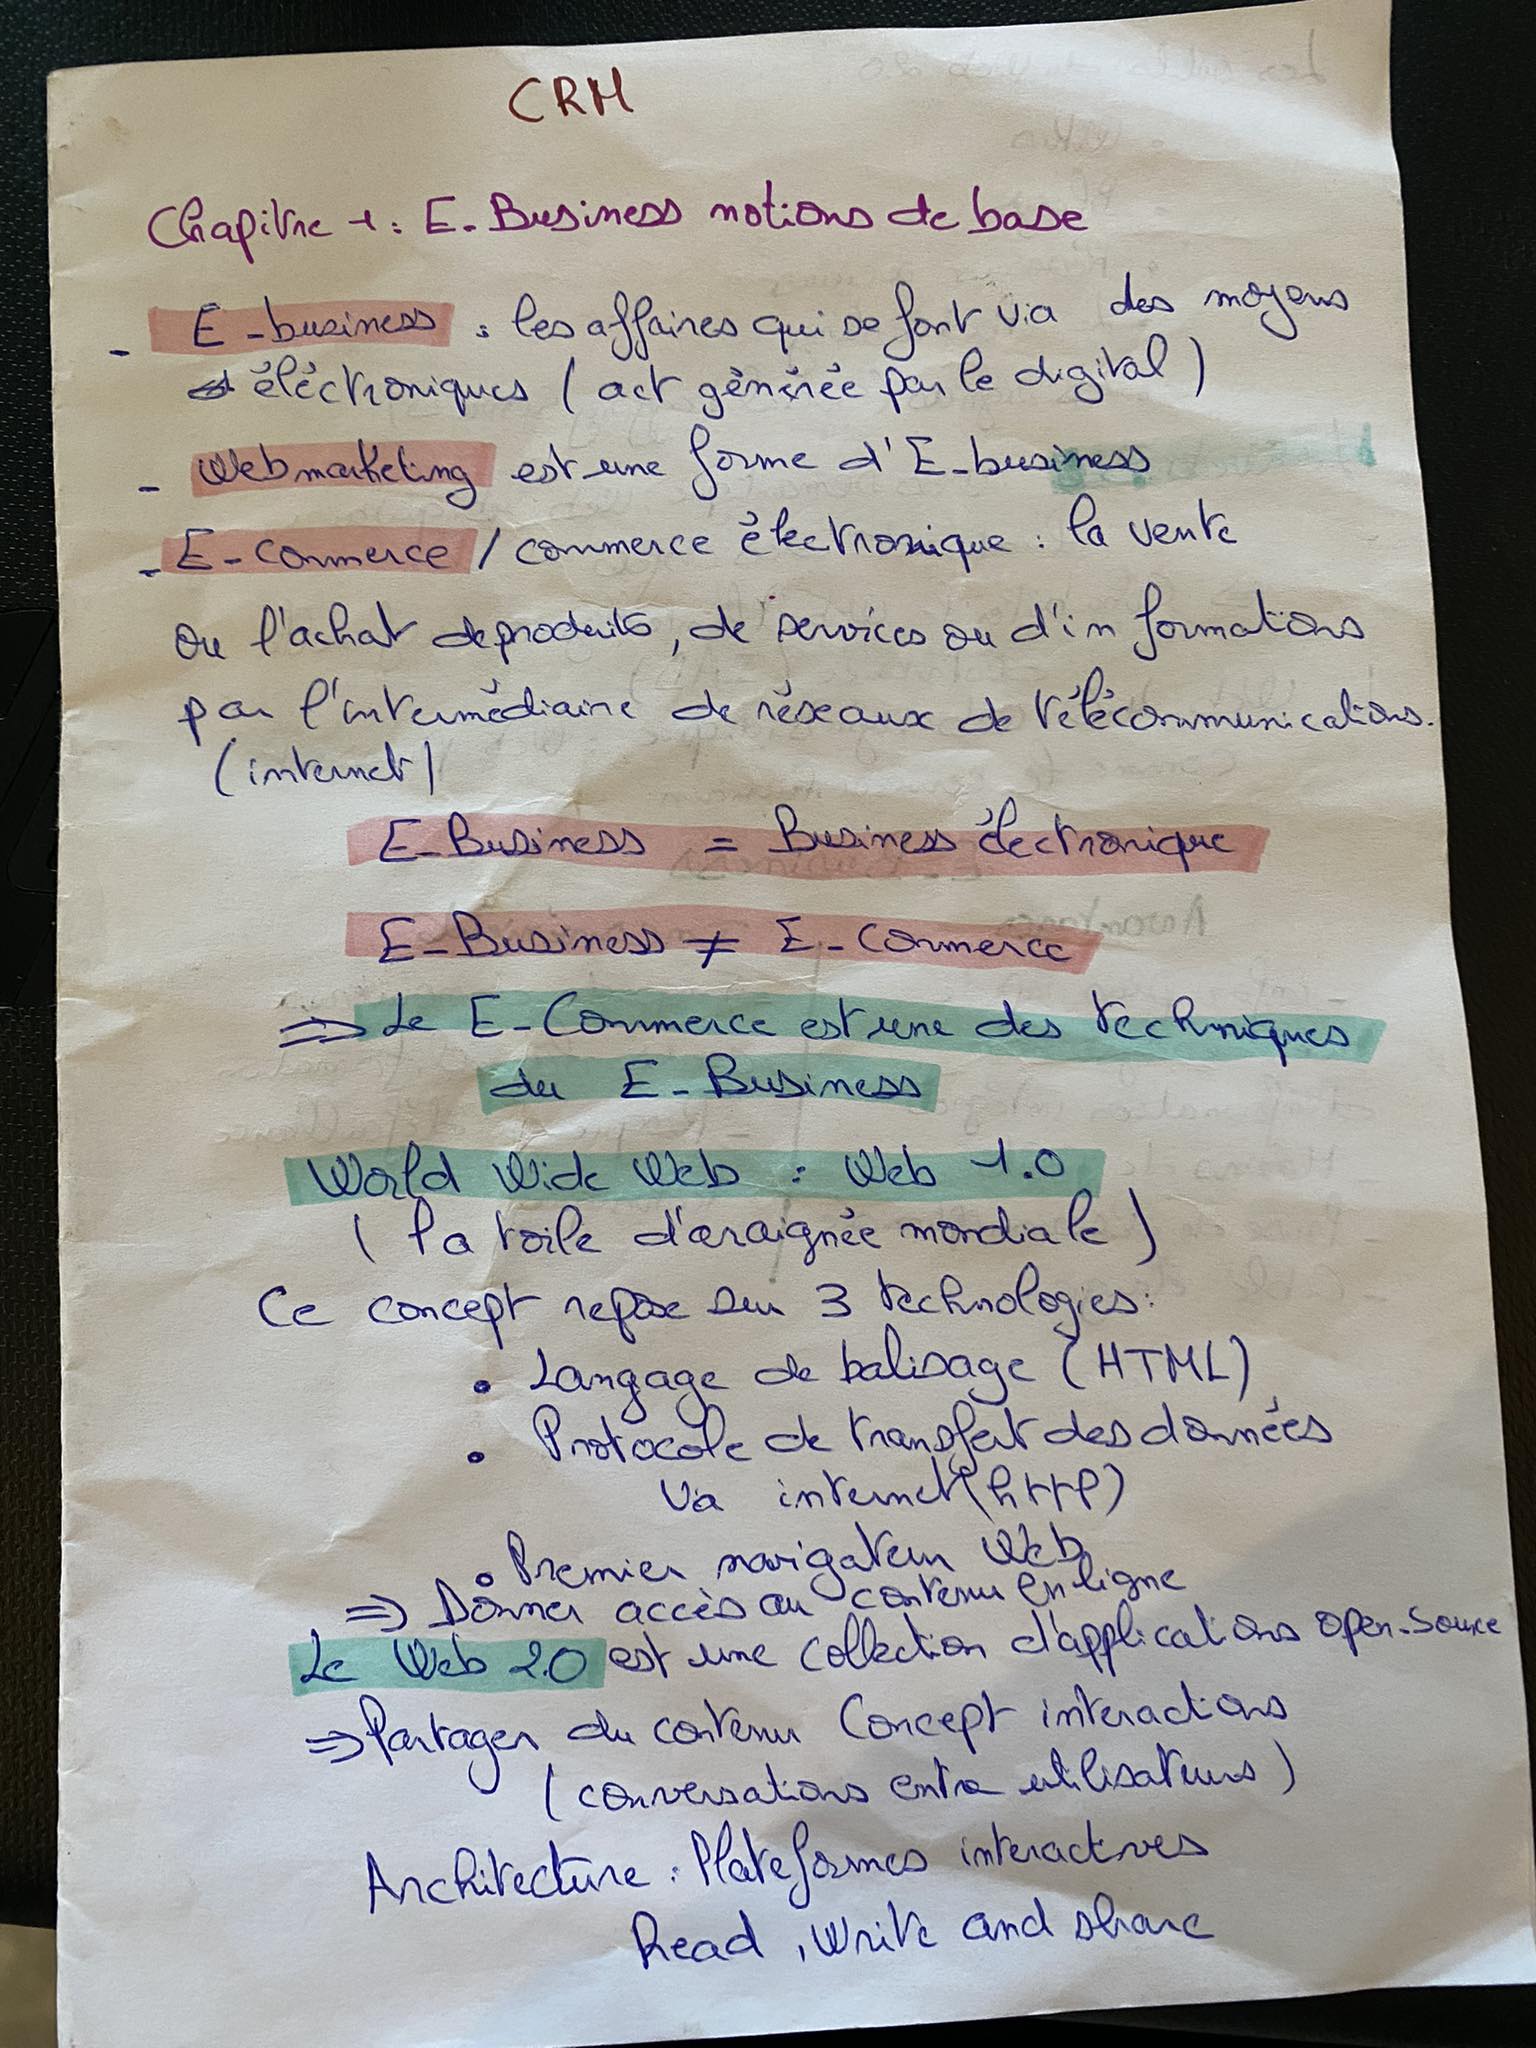 CRM
Chapitre 1: E-Business notions de base
- E-business : les affaires qui se font via des moyens
éléctroniques (act génerée par le digital)
- Webmarketing est une forme d'E-business
- E-Commerce / commerce électronique : la vente
ou l'achat de produits, de services ou d'informations
par l'intermédiaire de réseaux de télécommunications.
(internet)
E-Business = Business électronique
E-Business ≠ E-Commerce
⇒ Le E-Commerce est une des techniques
du E-Business
World Wide Web : Web 1.0
(la toile d'araignée mondiale)
Ce concept repose sur 3 technologies:
• Langage de balisage (HTML)
• Protocole de transfert des données
via internet (http)
• Premier navigateur Web
⇒ Donner accès au contenu en ligne
Le Web 2.0 est une collection d'applications open-source
⇒ Partager du contenu Concept interactions
(conversations entre utilisateurs)
Architecture : Plateformes interactives
Read, Write and share